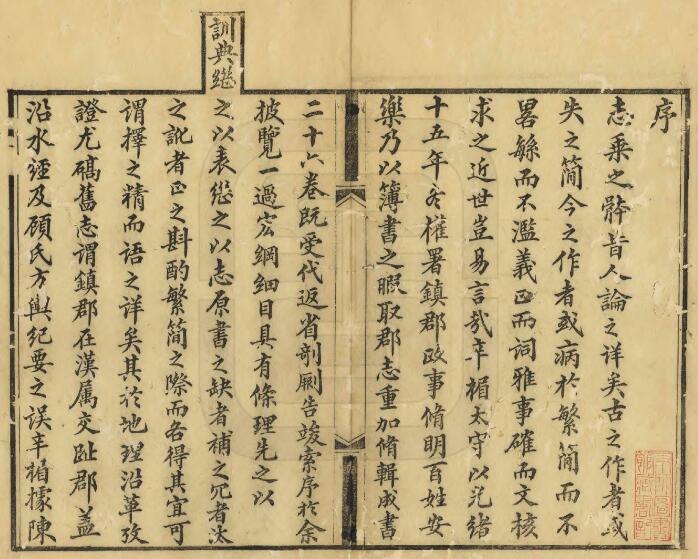 序
志乘之體昔人論之详矣古之作者或
失之简今之作者或病於繁简而不
畧繁而不濫義正而词雅事確而文核
求之近世豈易言哉辛楣太守以光绪
十五年冬權署鎮郡政事脩明百姓安
樂乃以簿書之暇取郡志重加脩輯成書
二十六卷既受代返省剞劂告竣索序於余
披覽一過宏綱細目具有條理先之以
之以表继之以志原書之缺者補之冗者汰
之訛者正之斟酌繁简之際而各得其宜可
谓擇之精而语之详矣其於地理沿革攷
證尤碻舊志谓鎮郡在漢属交趾郡蓋
沿水經及顾氏方輿纪要之误辛楣據陳
訓典继